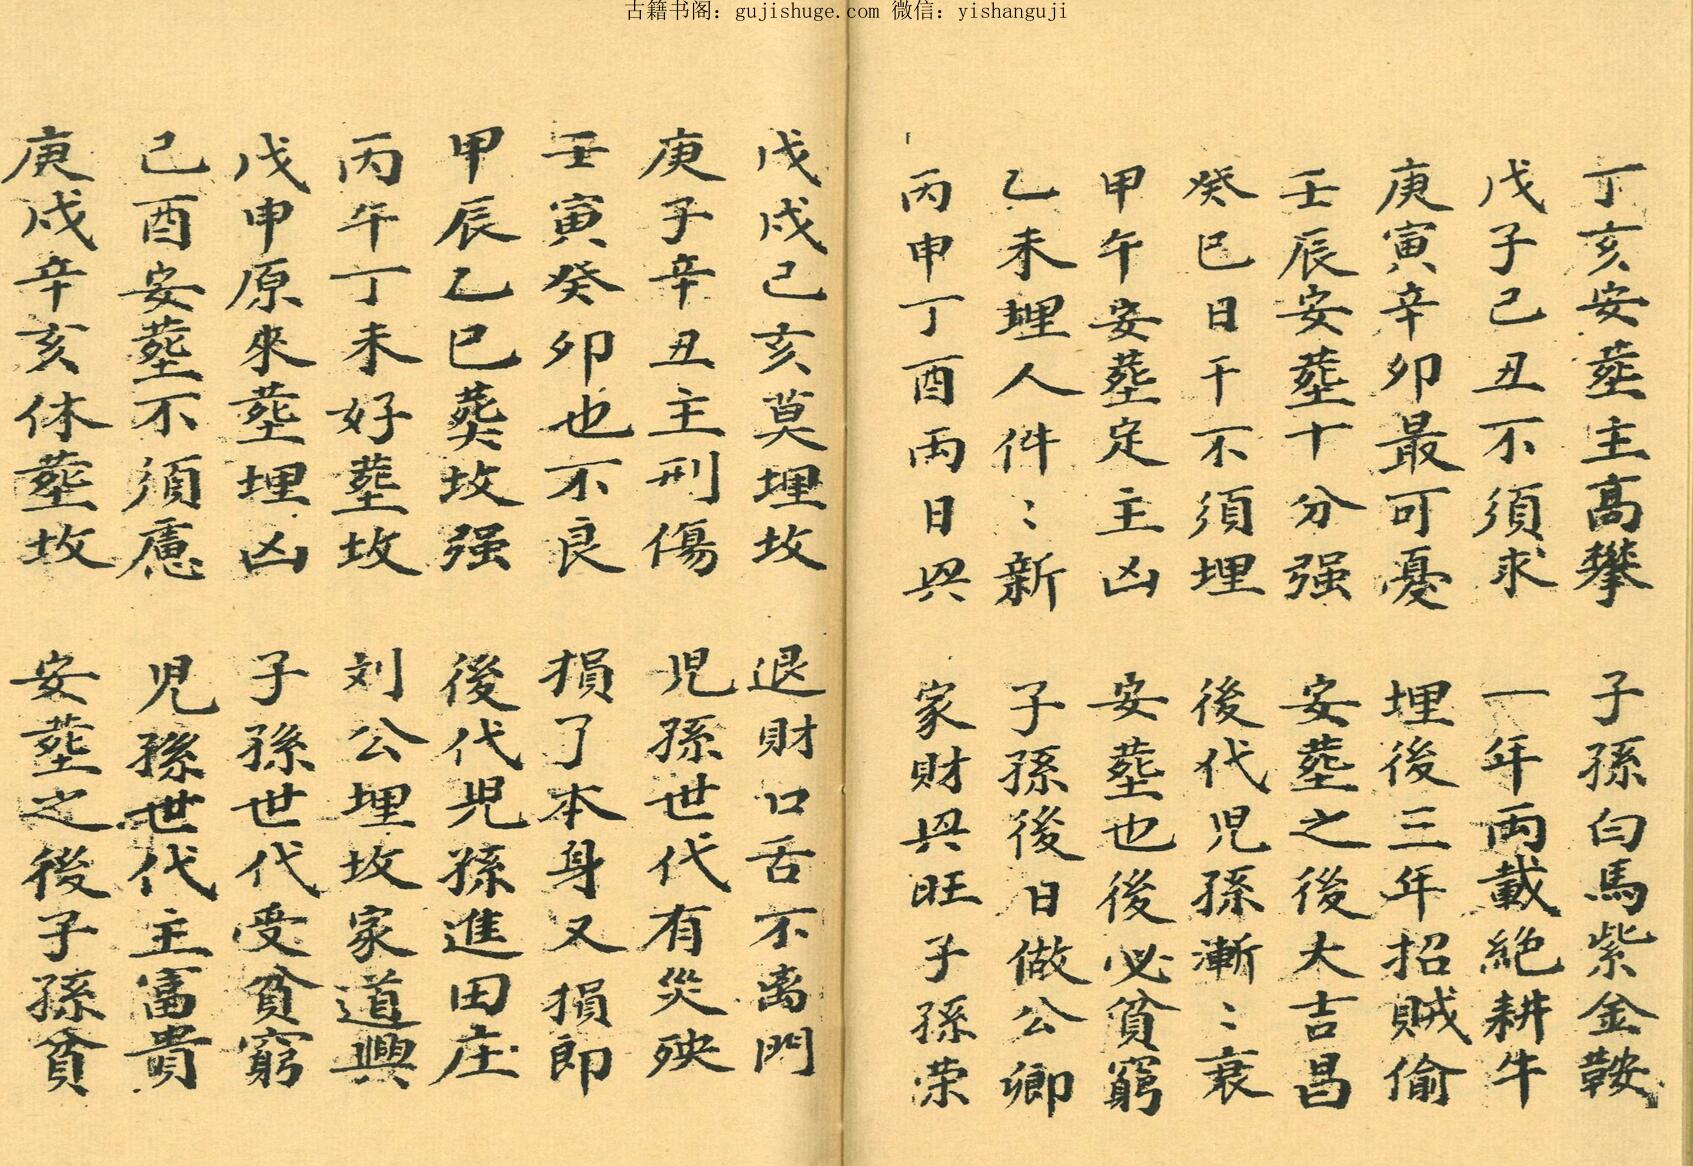 古籍书阁：gujishuge.com 微信：yishanguji
丁亥安塟主高攀　子孫白馬紫金鞍
戊子己丑不須求　一年兩載絕耕牛
庚寅辛卯最可憂　埋後三年招賊偷
壬辰安塟十分强　安塟之後大吉昌
癸巳日干不須埋　後代児孫漸〻衰
甲午安塟定主凶　安塟也後必貧窮
乙未埋人件〻新　子孫後日做公卿
丙申丁酉両日興　家財興旺子孫荣
戊戍己亥莫埋坟　退財口舌不离門
庚子辛丑主刑傷　児孫世代有災殃
壬寅癸卯也不良　損了本身又損郎
甲辰乙巳葬坟强　後代児孫進田庄
丙午丁未好塟坟　刘公埋坟家道興
戊申原來塟埋凶　子孫世代受貧窮
己酉安塟不須慮　児孫世代主富貴
庚戍辛亥休塟坟　安塟之後子孫貧